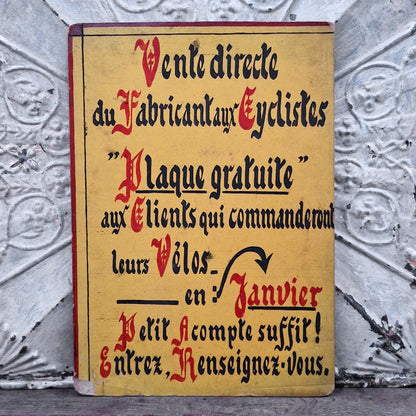 Vente directe
du Fabricant aux Cyclistes
"Plaque gratuite"
aux Clients qui commanderont
leurs Vélos
en : Janvier
Petit Acompte suffit !
Entrez, Renseignez-vous.